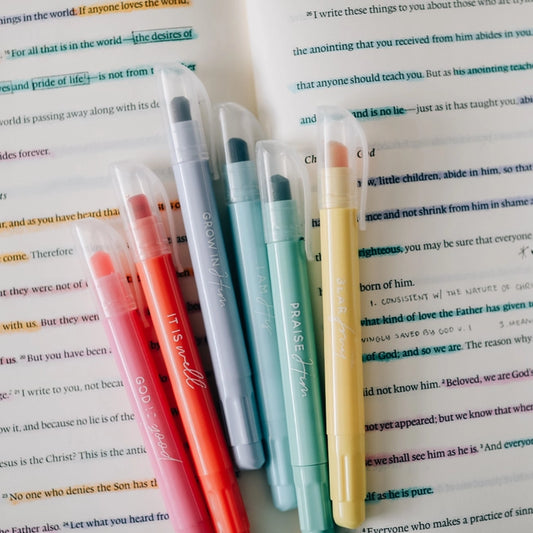 things in the world. If anyone loves the world,
16 For all that is in the world—the desires of
eyes and pride of life—is not from
world is passing away along with its
abides forever.
and as you have heard
come. Therefore
they were not of
with us. But they were
of us. 20 But you have been
21 I write to you, not
know it, and because no lie is of the
Jesus is the Christ? This is the
23 No one who denies the Son has
the Father also. 24 Let what you heard from
26 I write these things to you about those who are
the anointing that you received from him abides in you,
that anyone should teach you. But as his anointing
and is no lie—just as it has taught you,
God
now, little children, abide in him, so that
and not shrink from him in shame
righteous, you may be sure that everyone
born of him.
1. CONSISTENT W/ THE NATURE OF
what kind of love the Father has given to
SAVED BY GOD V. 1
of God; and so we are. The reason why
did not know him. 2 Beloved, we are God's
not yet appeared; but we know that when
we shall see him as he is. 3 And everyone
as he is pure.
4 Everyone who makes a practice of
GOD IS good
IT IS well
GROW IN Him
I AM His
PRAISE Him